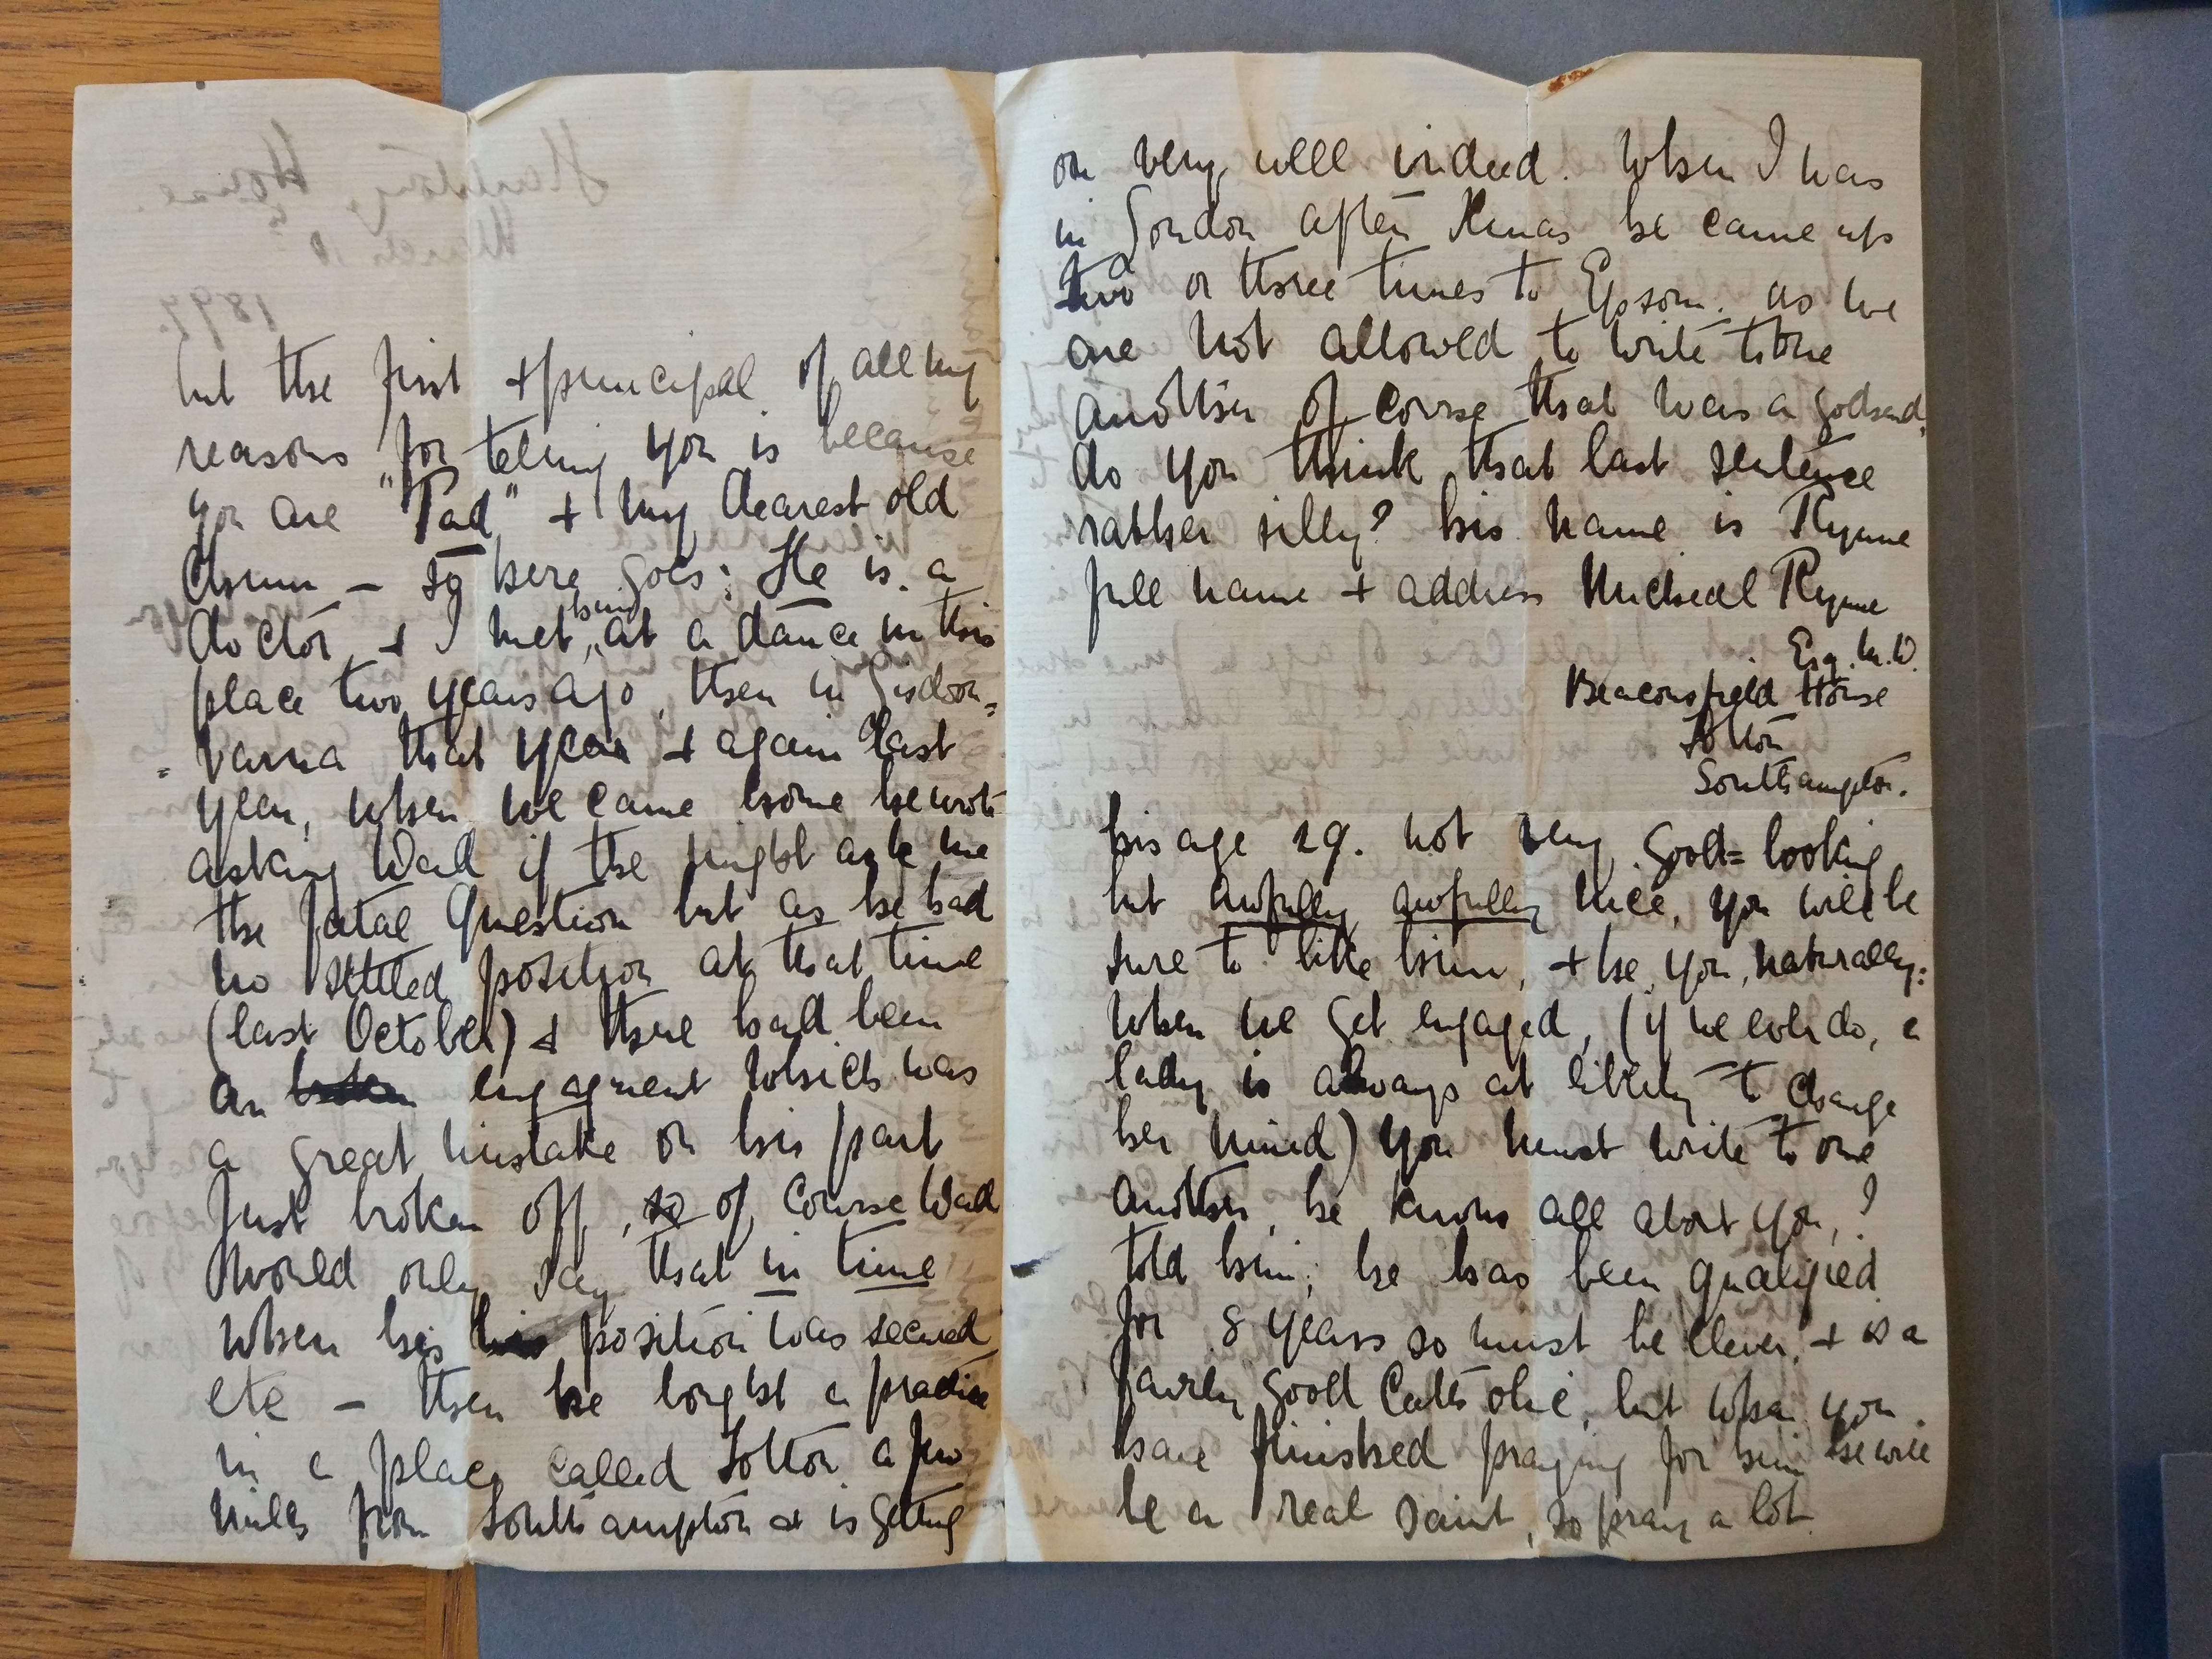 but the first + principal of all my
reasons for telling you is because
you are "Pad" + my dearest old
chum – so here goes: He is a
doctor + I met him at a dance in this
place two years ago, then in Lisdoon=
=varna that year + again last
year, when we came home he wrote
asking Dad if he might ask me
the fatal question but as he had
no settled position at that time
(last October) + there had been
an engagment which was
a great mistake on his part
just broken off, so of course Dad
would only say that in time
when his position was secured
etc – then he bought a practice
in a place called Totton a few
miles from Southampton + is getting
on very well indeed. When I was
in London after Xmas he came up
two or three times to Epsom. as we
are not allowed to write to one
another of course that was a godsend,
do you think that last sentence
rather silly? his name is Ryme
full name + address Micheal Ryme
Esq. M.D.
Beaconsfield House
Totton
Southampton.
his age 29. not very good=looking
but awfully awfully nice, you will be
sure to like him, + he, you, naturally:
when we get engaged, (if we ever do, a
lady is always at liberty to change
her mind) you must write to one
another, he knows all about you, I
told him; he has been qualified
for 8 years so must be clever, + is a
fairly good Catholic, but when you
have finished praying for him he will
be a real saint, so pray a lot.
House
March 10
1897.